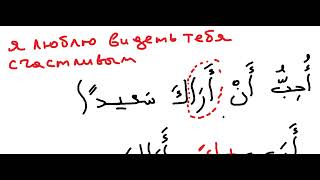 я люблю видеть тебя
счастливым
أُحِبُّ أَنْ أَرَاكَ سَعِيدًا)